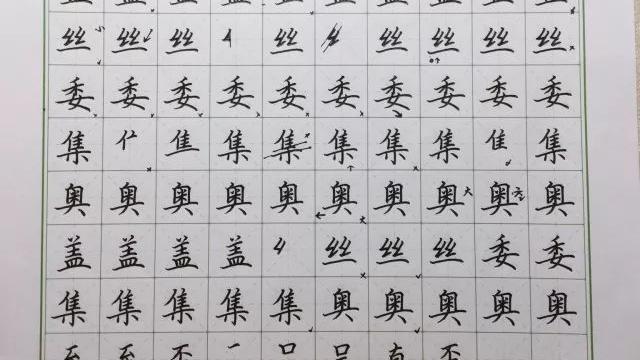 丝丝丝丝丝丝丝丝
委委委委委委委委委委
集亻隹集集集集集隹集
奥奥奥奥奥奥奥奥奥奥
盖盖盖盖丝丝丝委委
集集集集集奥奥奥奥奥